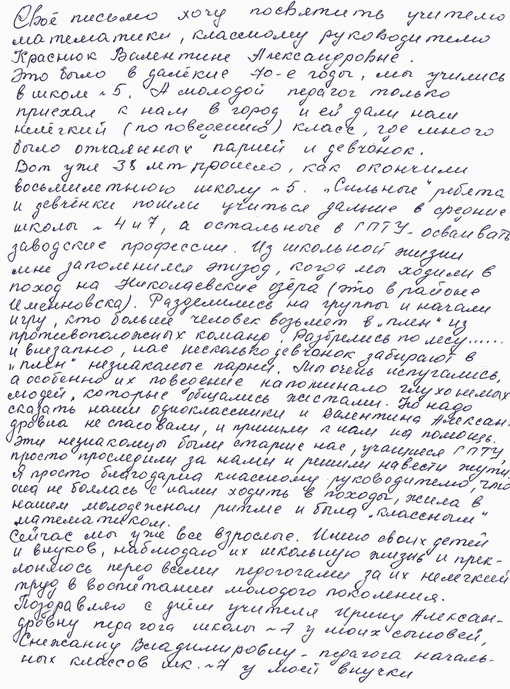 Своё письмо хочу посвятить учителю
математики, классному руководителю
Краснюк Валентине Александровне.
Это было в далёкие 70-е годы, мы учились
в школе №5. А молодой педагог только
приехал к нам в город и ей дали наш
нелёгкий (по поведению) класс, где много
было отчаянных парней и девчонок.
Вот уже 38 лет прошло, как окончили
восьмилетнюю школу №5. „Сильные" ребята
и девчёнки пошли учиться дальше в средние
школы №4 и 7, а остальные в ГПТУ- осваивать
заводские профессии. Из школьной жизни
мне запомнился эпизод, когда мы ходили в
поход на Николаевские озёра (это в районе
Именновска). Разделились на группы и начали
игру, кто больше человек возьмет в „плен" из
противоположных команд. Разбрелись по лесу......
и внезапно, нас несколько девчонок забирают в
„плен" незнакомые парни. Мы очень испугались,
а особенно их поведение напоминало глухонемых
людей, которые общались жестами. Но надо
сказать наши одноклассники и Валентина Алексан-
дровна не спасовали, и пришли к нам на помощь.
Эти незнакомцы были старше нас, учащиеся ГПТУ,
просто проследили за нами и решили навести жути.
Я просто благодарна классному руководителю, что
она не боялась с нами ходить в походы, жила в
нашем молодежном ритме и была „классным"
математиком.
Сейчас мы уже все взрослые. Имею своих детей
и внуков, наблюдаю их школьную жизнь и прек-
лоняюсь перед всеми педогогами за их нелегкий
труд в воспитании молодого поколения.
Поздравляю с днём учителя Ирину Алексан-
дровну педагога школы №7 у моих сыновей,
Снежанну Владимировну - педагога началь-
ных классов шк. №7 у моей внучки